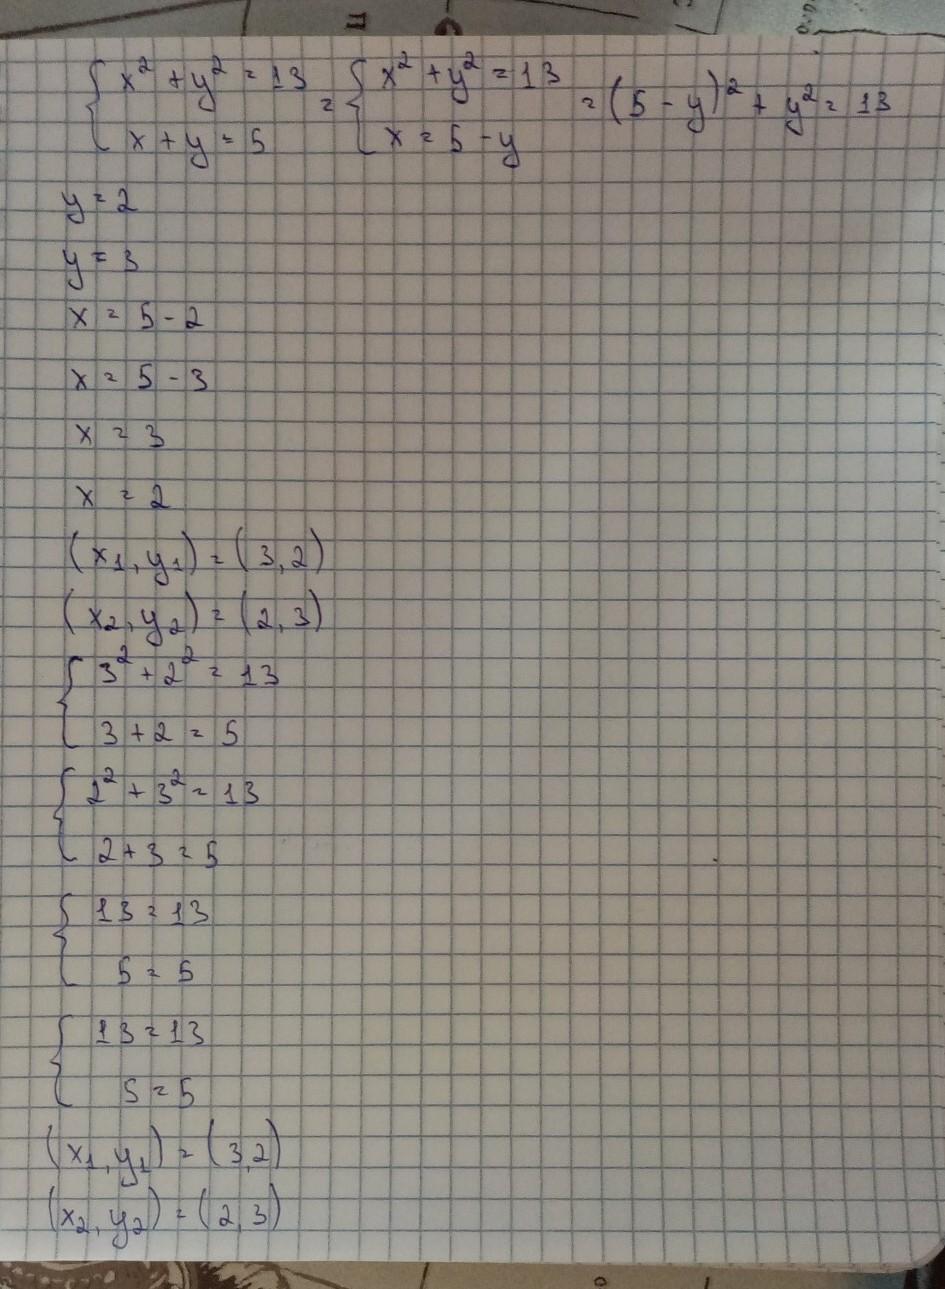 { x² + y² = 13 = { x² + y² = 13 = (5 - y)² + y² = 13
x + y = 5 x = 5 - y
y = 2
y = 3
x = 5 - 2
x = 5 - 3
x = 3
x = 2
(x₁, y₁) = (3, 2)
(x₂, y₂) = (2, 3)
{ 3² + 2² = 13
3 + 2 = 5
{ 2² + 3² = 13
2 + 3 = 5
{ 13 = 13
5 = 5
{ 13 = 13
5 = 5
(x₁, y₁) = (3, 2)
(x₂, y₂) = (2, 3)